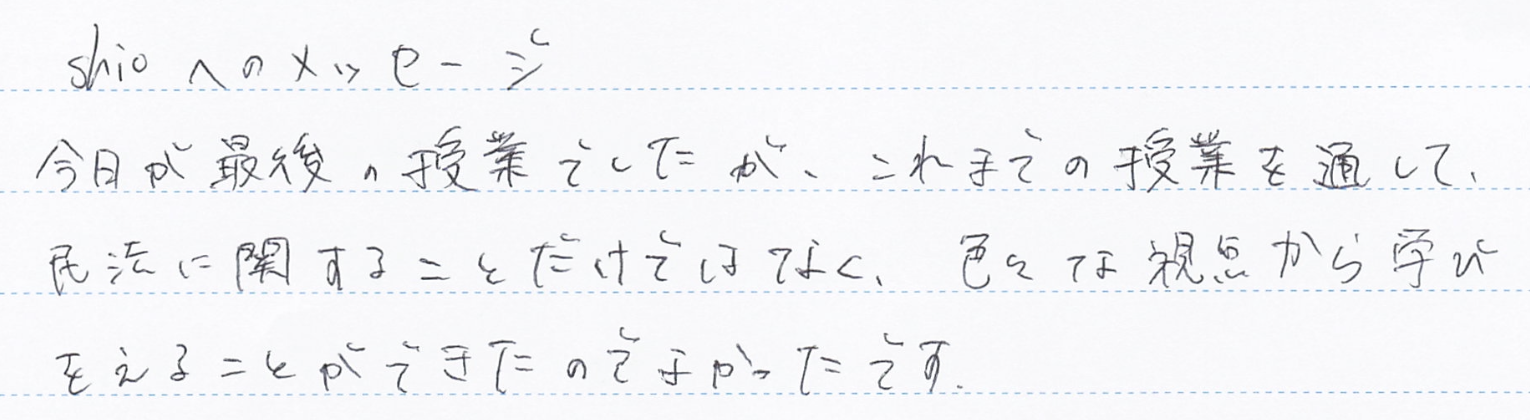 shioへのメッセージ
今日が最後の授業でしたが、これまでの授業を通して、
民法に関することだけではなく、色々な視点から学び
をえることができたのでよかったです.